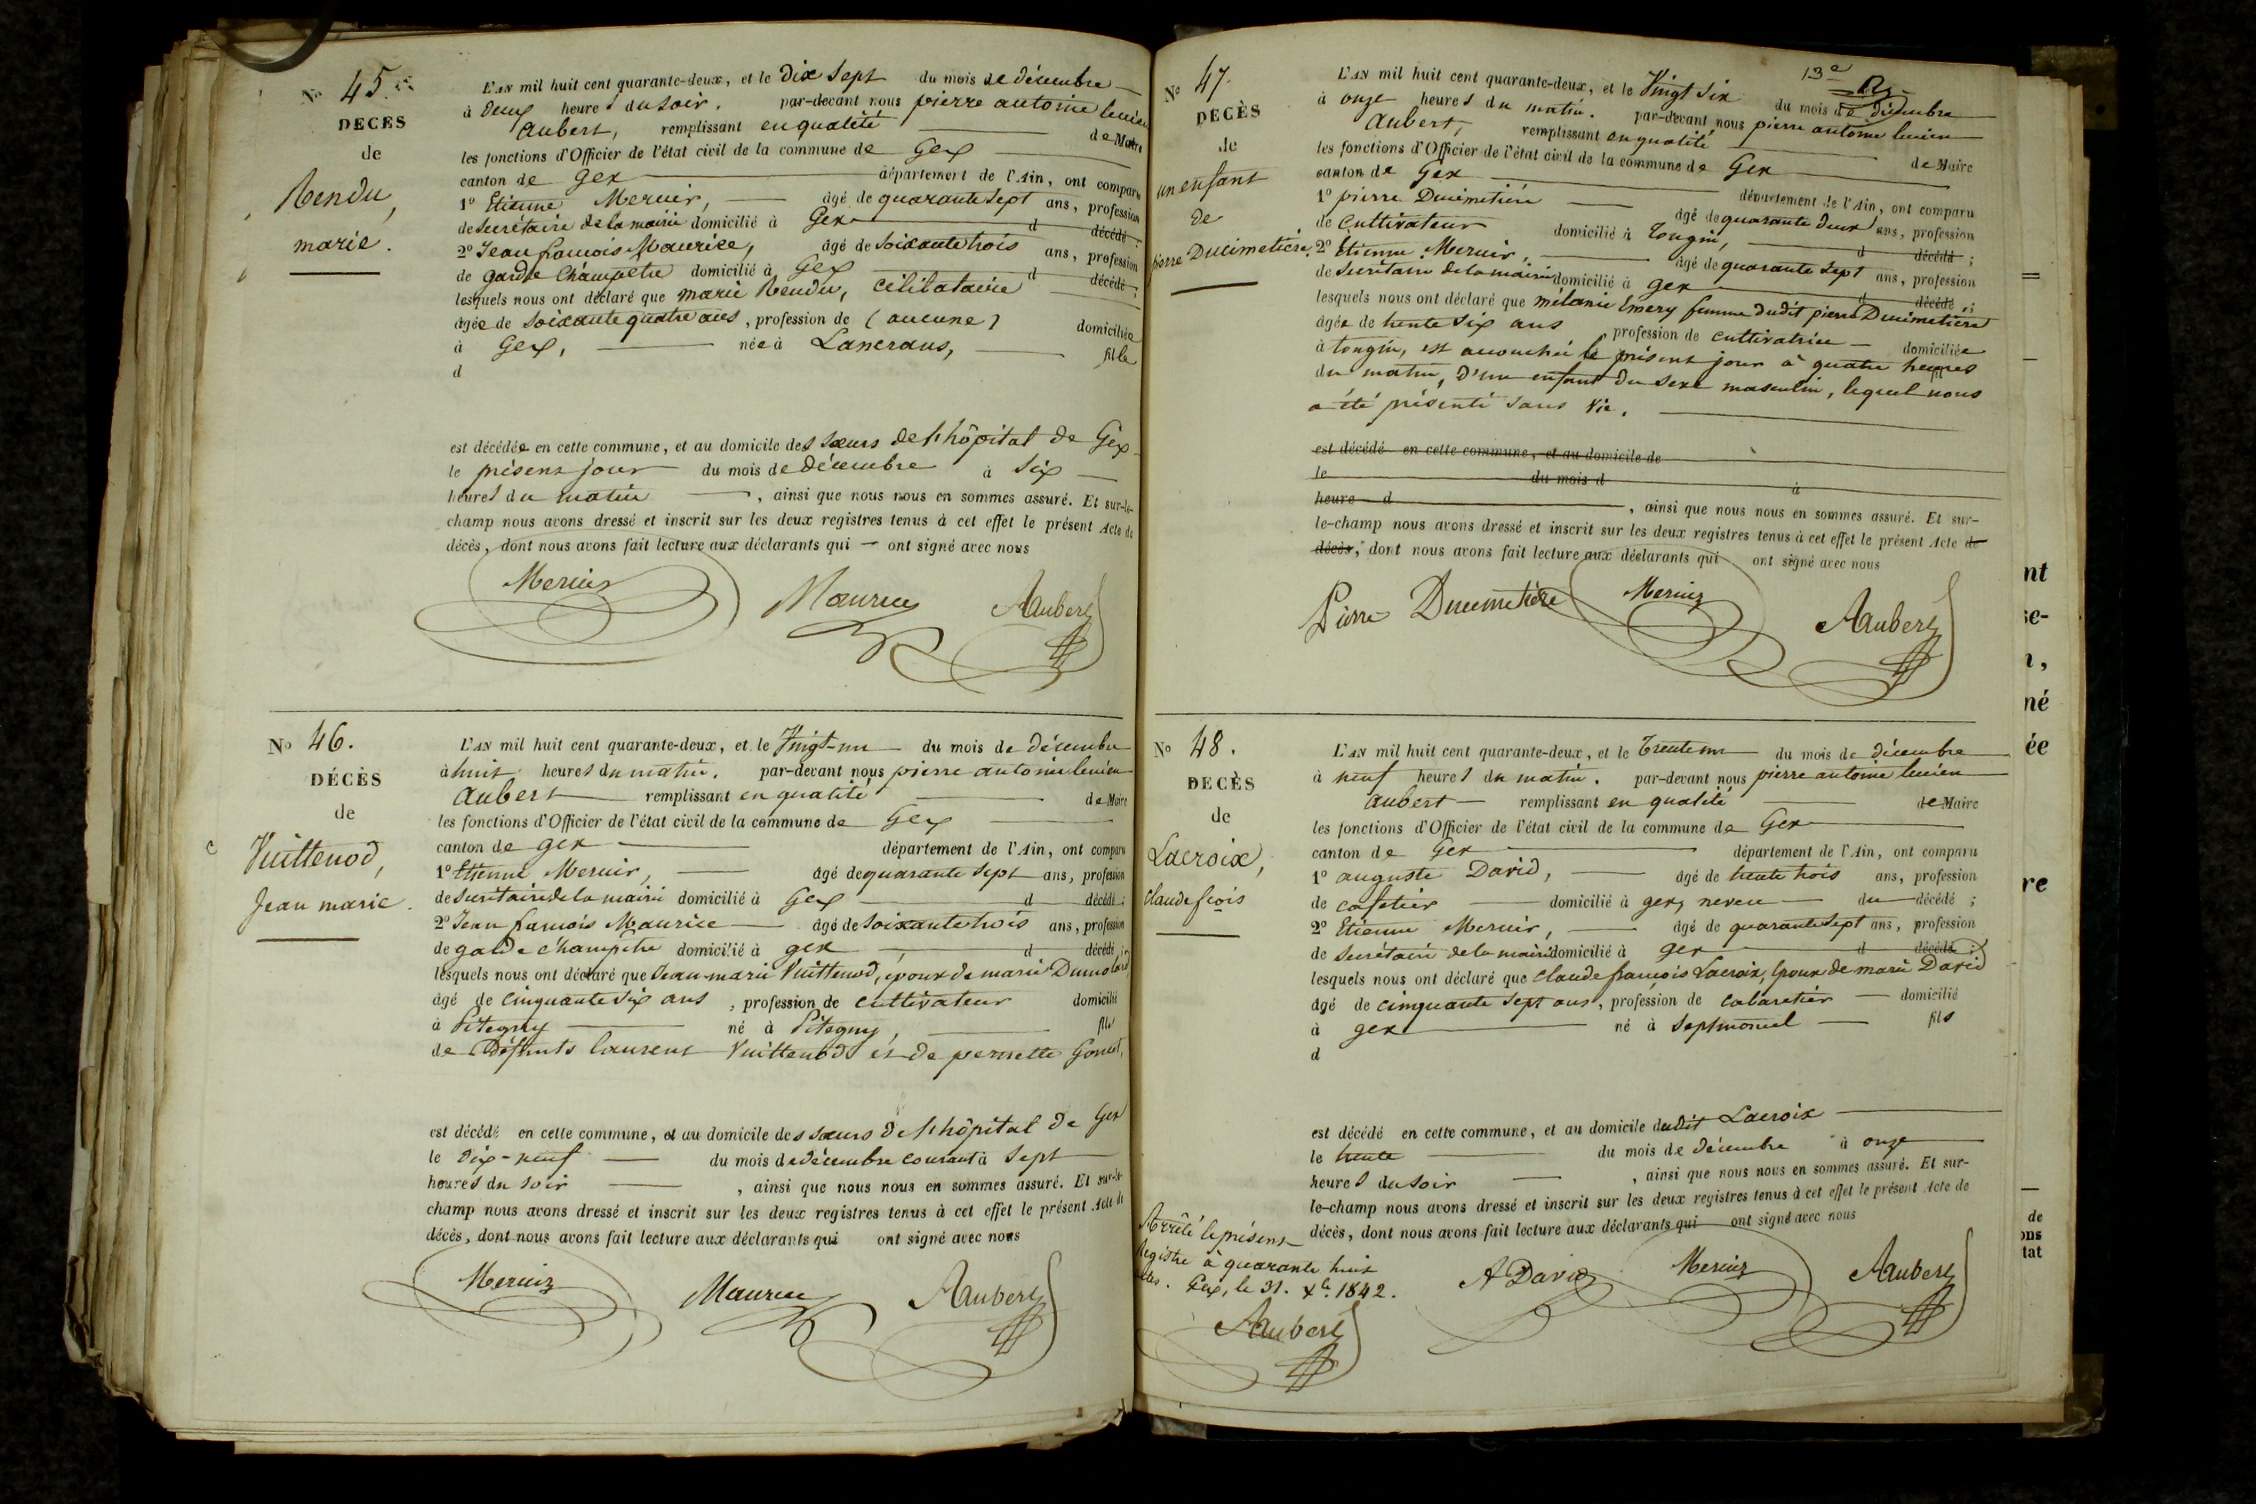 No 45.
DECES
de
Rendu,
marie.
L'AN mil huit cent quarante-deux, et le Dix Sept du mois de décembre
à Deux heures du soir. par-devant nous pierre antoine lucien
aubert, remplissant en qualité de Maire
les fonctions d'Officier de l'état civil de la commune de Gex
canton de Gex département de l'Ain, ont comparu
1º Etienne Mercier, âgé de quarante sept ans, profession
de secrétaire de la mairie domicilié à Gex d décédé ;
2º Jean françois Maurice, âgé de soixante trois ans, profession
de garde Champetre domicilié à Gex d décédé ;
lesquels nous ont déclaré que marie Rendu, célibataire
âgée de soixante quatre ans, profession de (aucune) domiciliée
à Gex, née à Lancrans, fille
d
est décédée en cette commune, et au domicile des sœurs de l'hôpital de Gex
le présent jour du mois de décembre à six
heures du matin, ainsi que nous nous en sommes assuré. Et sur-le-
champ nous avons dressé et inscrit sur les deux registres tenus à cet effet le présent Acte de
décès, dont nous avons fait lecture aux déclarants qui ont signé avec nous
Mercier Maurice Aubert
No 46.
DÉCÈS
de
Vuittenod,
Jean marie.
L'AN mil huit cent quarante-deux, et le Vingt-un du mois de décembre
à huit heures du matin. par-devant nous pierre antoine lucien
aubert remplissant en qualité de Maire
les fonctions d'Officier de l'état civil de la commune de Gex
canton de gex département de l'Ain, ont comparu
1º Etienne Mercier, âgé de quarante sept ans, profession
de secrétaire de la mairie domicilié à Gex d décédé ;
2º Jean françois Maurice âgé de soixante trois ans, profession
de garde champetre domicilié à gex, d décédé ;
lesquels nous ont déclaré que Jean-marie Vuittenod, époux de marie Dumolard
âgé de cinquante six ans, profession de cultivateur domicilié
à Pitegny né à Pitegny, fils
de Défunts laurent Vuittenod et de pernette Gonet,
est décédé en cette commune, et au domicile des sœurs de l'hôpital de Gex
le dix-neuf du mois de décembre courant à sept
heures du soir, ainsi que nous nous en sommes assuré. Et sur-le-
champ nous avons dressé et inscrit sur les deux registres tenus à cet effet le présent Acte de
décès, dont nous avons fait lecture aux déclarants qui ont signé avec nous
Mercier Maurice Aubert
13e
No 47.
DECÈS
de
un enfant
de
pierre Ducimetière.
L'AN mil huit cent quarante-deux, et le Vingt Six du mois de décembre
à onze heures du matin. par-devant nous pierre antoine lucien
Aubert, remplissant en qualité de Maire
les fonctions d'Officier de l'état civil de la commune de Gex
canton de Gex département de l'Ain, ont comparu
1º pierre Ducimetière âgé de quarante deux ans, profession
de cultivateur domicilié à Tongin, d décédé ;
2º Etienne Mercier, âgé de quarante sept ans, profession
de secrétaire de la mairie domicilié à gex d décédé ;
lesquels nous ont déclaré que mélanie Emery femme dudit pierre Ducimetière
âgée de trente six ans profession de cultivatrice domiciliée
à tongin, est accouchée le présent jour à quatre heures
du matin, d'un enfant du sexe masculin, lequel nous
a été présenté sans vie.
est décédé en cette commune, et au domicile de
le du mois d à
heure d, ainsi que nous nous en sommes assuré. Et sur-
le-champ nous avons dressé et inscrit sur les deux registres tenus à cet effet le présent Acte de
décès, dont nous avons fait lecture aux déclarants qui ont signé avec nous
Pierre Ducimetière Mercier Aubert
No 48.
DECÈS
de
Lacroix,
claude fçois
L'AN mil huit cent quarante-deux, et le trente un du mois de décembre
à neuf heures du matin. par-devant nous pierre antoine lucien
aubert remplissant en qualité de Maire
les fonctions d'Officier de l'état civil de la commune de Gex
canton de Gex département de l'Ain, ont comparu
1º auguste David, âgé de trente trois ans, profession
de cafetier domicilié à gex, neveu du décédé ;
2º Etienne Mercier, âgé de quarante sept ans, profession
de secrétaire de la mairie domicilié à gex d décédé ;
lesquels nous ont déclaré que claude françois Lacroix, époux de marie David
âgé de cinquante sept ans, profession de cabaretier domicilié
à gex né à septmoncel fils
d
est décédé en cette commune, et au domicile dudit Lacroix
le trente du mois de décembre à onze
heures du soir, ainsi que nous nous en sommes assuré. Et sur-
le-champ nous avons dressé et inscrit sur les deux registres tenus à cet effet le présent Acte de
décès, dont nous avons fait lecture aux déclarants qui ont signé avec nous
A David Mercier Aubert
Arrêté le présent
Registre à quarante huit
actes. Gex, le 31. Xbre. 1842.
Aubert
nt
se-
n,
né
ée
re
de
ons
tat